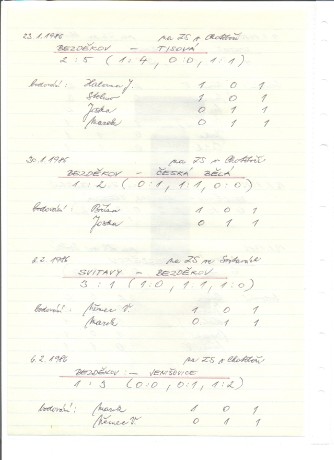 23.1.1986 na ZS v Chotěboři
BEZDĚKOV – TISOVÁ
2 : 5 ( 1 : 4 , 0 : 0 , 1 : 1 )
Bodování : Halama J. 1 0 1
1 0 1
Joska 0 1 1
Marek 0 1 1
30.1.1986 na ZS v Chotěboři
BEZDĚKOV – ČESKÁ BĚLÁ
1 : 2 ( 0 : 1 , 1 : 1 , 0 : 0 )
Bodování : 1 0 1
Joska 0 1 1
6.2.1986 na ZS ve
SVITAVY – BEZDĚKOV
3 : 1 ( 1 : 0 , 1 : 1 , 1 : 0 )
Bodování : Němec V. 1 0 1
Marek 0 1 1
6.2.1986 na ZS v Chotěboři
BEZDĚKOV – JENIŠOVICE
1 : 3 ( 0 : 0 , 0 : 1 , 1 : 2 )
Bodování : Marek 1 0 1
Němec V. 0 1 1